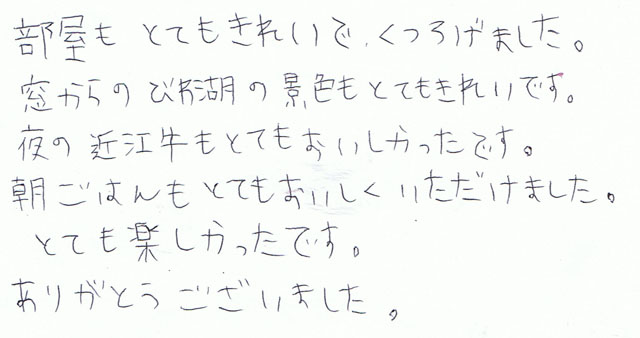 部屋も とてもきれいで、くつろげました。
窓からの びわ湖の景色もとてもきれいです。
夜の近江牛もとてもおいしかったです。
朝ごはんもとてもおいしくいただけました。
とても楽しかったです。
ありがとうございました。